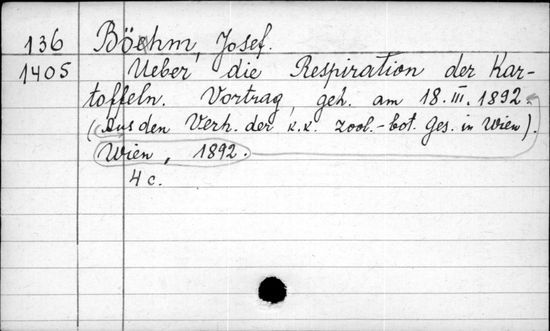 136 Böhm, Josef.
1405 Ueber die Respiration der Kar-
toffeln. Vortrag, geh. am 18. III. 1892.
(Aus den Verh. der k. k. zool.-bot. Ges. in Wien).
Wien, 1892.
4 c.